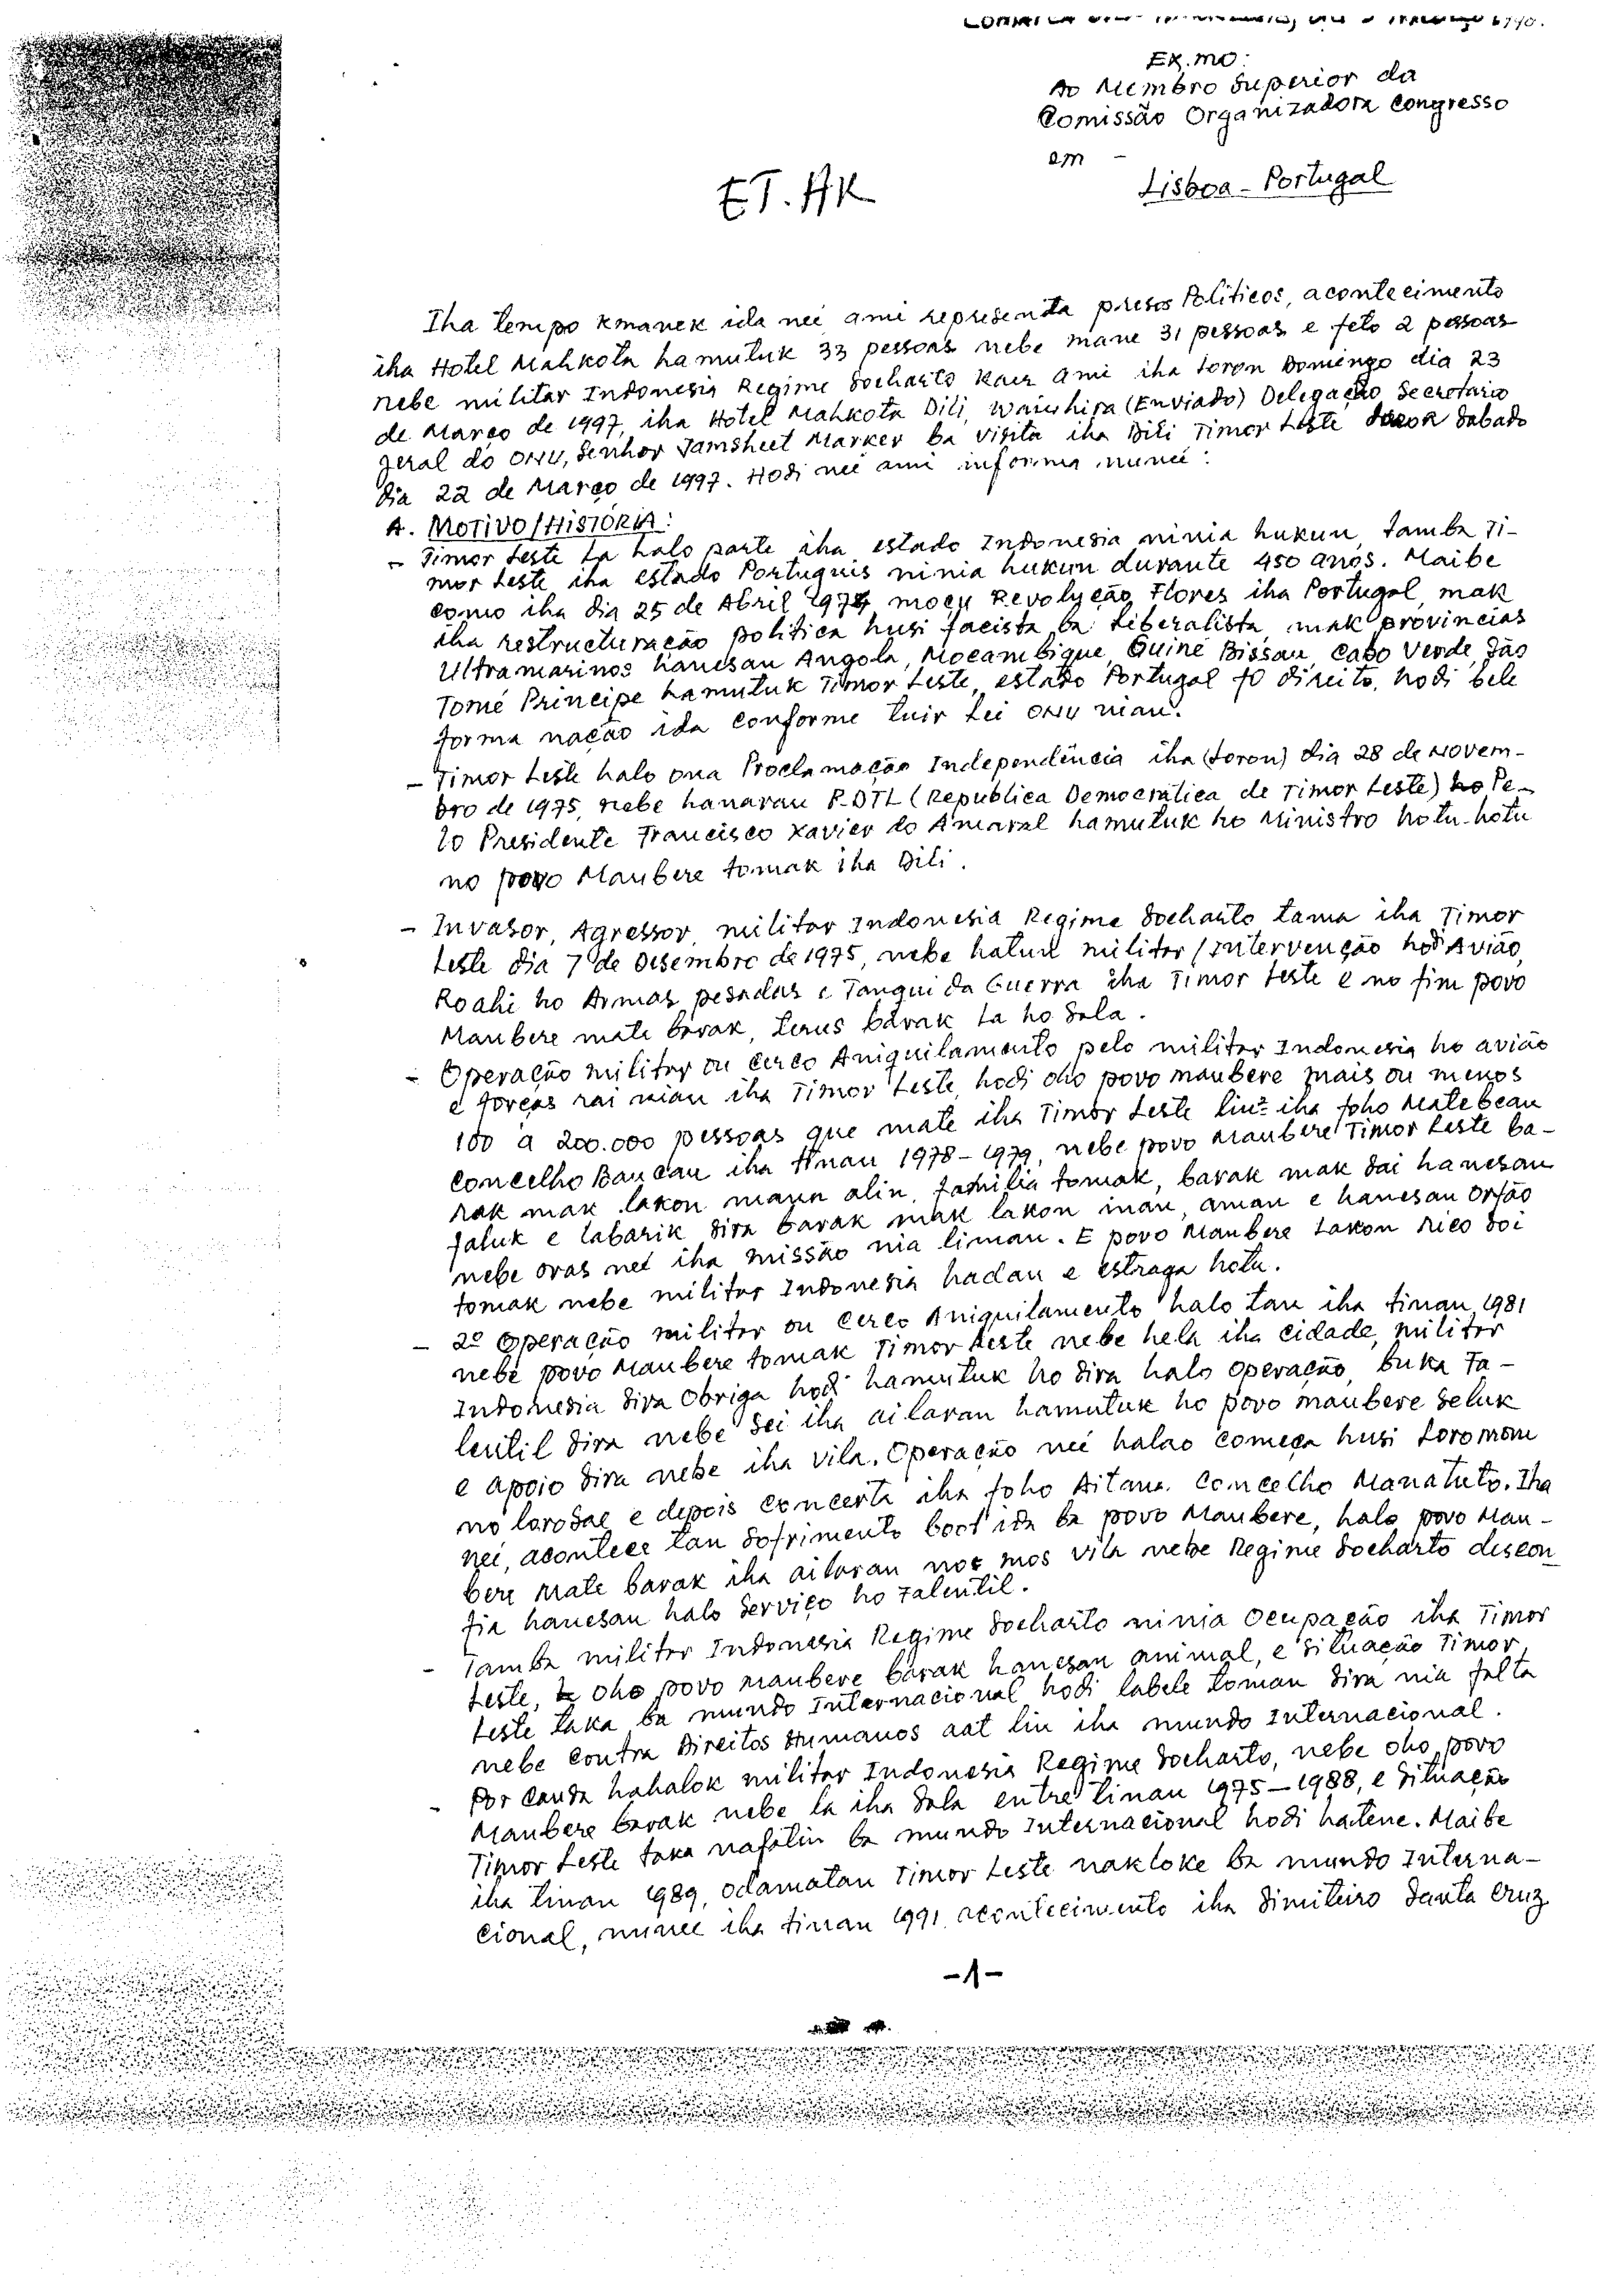 Ex.mo:
Ao Membro Superior da
Comissão Organizadora Congresso
em -
Lisboa - Portugal
ET. HK
Iha tempo kmanek ida neé ami representa presos Políticos, acontecimento
iha Hotel Mahkota hamutuk 33 pessoas nebe mane 31 pessoas e feto 2 pessoas
nebe militar Indonesia Regime Soeharto kaer ami iha loron Domingo dia 23
de Março de 1997, iha Hotel Mahkota Dili, (Enviado) Delegação Secretario
geral do ONU, Senhor Jamsheet Marker ba visita iha Dili Timor Leste Sabado
dia 22 de Março de 1997. Hodi neé ami informa nuneé:
A. MOTIVO/HISTÓRIA:
- Timor Leste la halo parte iha estado Indonesia ninia hukun, tamba Ti-
mor Leste iha estado Portuguis ninia hukun durante 450 anos. Maibe
como iha dia 25 de Abril 1974, moçu Revolução Flores iha Portugal, mak
iha restructuração politica husi facista ba Liberalista, mak provincias
Ultramarinos hanesan Angola, Moçambique, Guiné Bissau, Cabo Verde, São
Tomé Principe hamutuk Timor Leste, estado Portugal fo direito, hodi bele
forma nação ida conforme tuir Lei ONU nian.
- Timor Leste halo ona Proclamação Independência iha (loron) dia 28 de Novem-
bro de 1975, nebe hanaran R-DTL (Republica Democrática de Timor Leste) Pe-
lo Presidente Francisco Xavier do Amaral hamutuk ho Ministro hotu-hotu
no povo Maubere tomak iha Dili.
- Invasor, Agressor, militar Indonesia Regime Soeharto tama iha Timor
Leste dia 7 de Desembro de 1975, nebe hatun militar/intervenção hodi Avião,
Roahi ho Armas pesadas e Tanqui da Guerra iha Timor Leste e no fim povo
Maubere mate barak, terus barak la ho Sala.
- Operação militar ou cerco Aniquilamento pelo militar Indonesia ho avião
e forças rai nian iha Timor Leste, hodi oho povo maubere mais ou menos
100 a 200.000 pessoas que mate iha Timor Leste liu² iha foho Matebean
Concelho Baucau iha tinan 1978-1979, nebe povo Maubere Timor Leste ba-
rak mak lakon maun alin, familia tomak, barak mak sai hanesan
faluk e labarik sira barak mak lakon inan, aman e hanesan orfão
nebe oras neé iha missão nia liman. E povo Maubere Lakon rico soi
tomak nebe militar Indonesia hadau e estraga hotu.
- 2º Operação militar ou cerco Aniquilamento halo tan iha tinan 1981
nebe povo Maubere tomak Timor Leste nebe hela iha cidade, militar
Indonesia sira obriga hodi hamutuk ho sira halo operação, buka Fa-
lentil sira nebe sei iha ailaran hamutuk ho povo maubere seluk
e apoio sira nebe iha vila. Operação neé halao começa husi Loromonu
no lorosae e depois concerta iha foho Aitana. Concelho Manatuto. Iha
neé, acontece tan sofrimento boot ida ba povo Maubere, halo povo Mau-
bere mate barak iha ailaran noe mos vila nebe Regime Soeharto descon
fia hanesan halo serviço ho Falentil.
- Tamba militar Indonesia Regime Soeharto ninia ocupação iha Timor
Leste, oho povo maubere barak hanesan animal, e situação Timor
Leste taka ba mundo Internacional hodi labele toman sira nia falta
nebe contra Direitos Humanos aat liu iha mundo Internacional.
- Por causa hahalok militar Indonesia Regime Soeharto, nebe oho povo
Maubere barak nebe la iha sala entre tinan 1975-1988, e situação
Timor Leste taka nafatin ba mundo Internacional hodi hatene. Maibe
iha tinan 1989, odamatan Timor Leste nakloke ba mundo Interna-
cional, nunee iha tinan 1991 acontecimento iha Simiteiro Santa Cruz
-1-